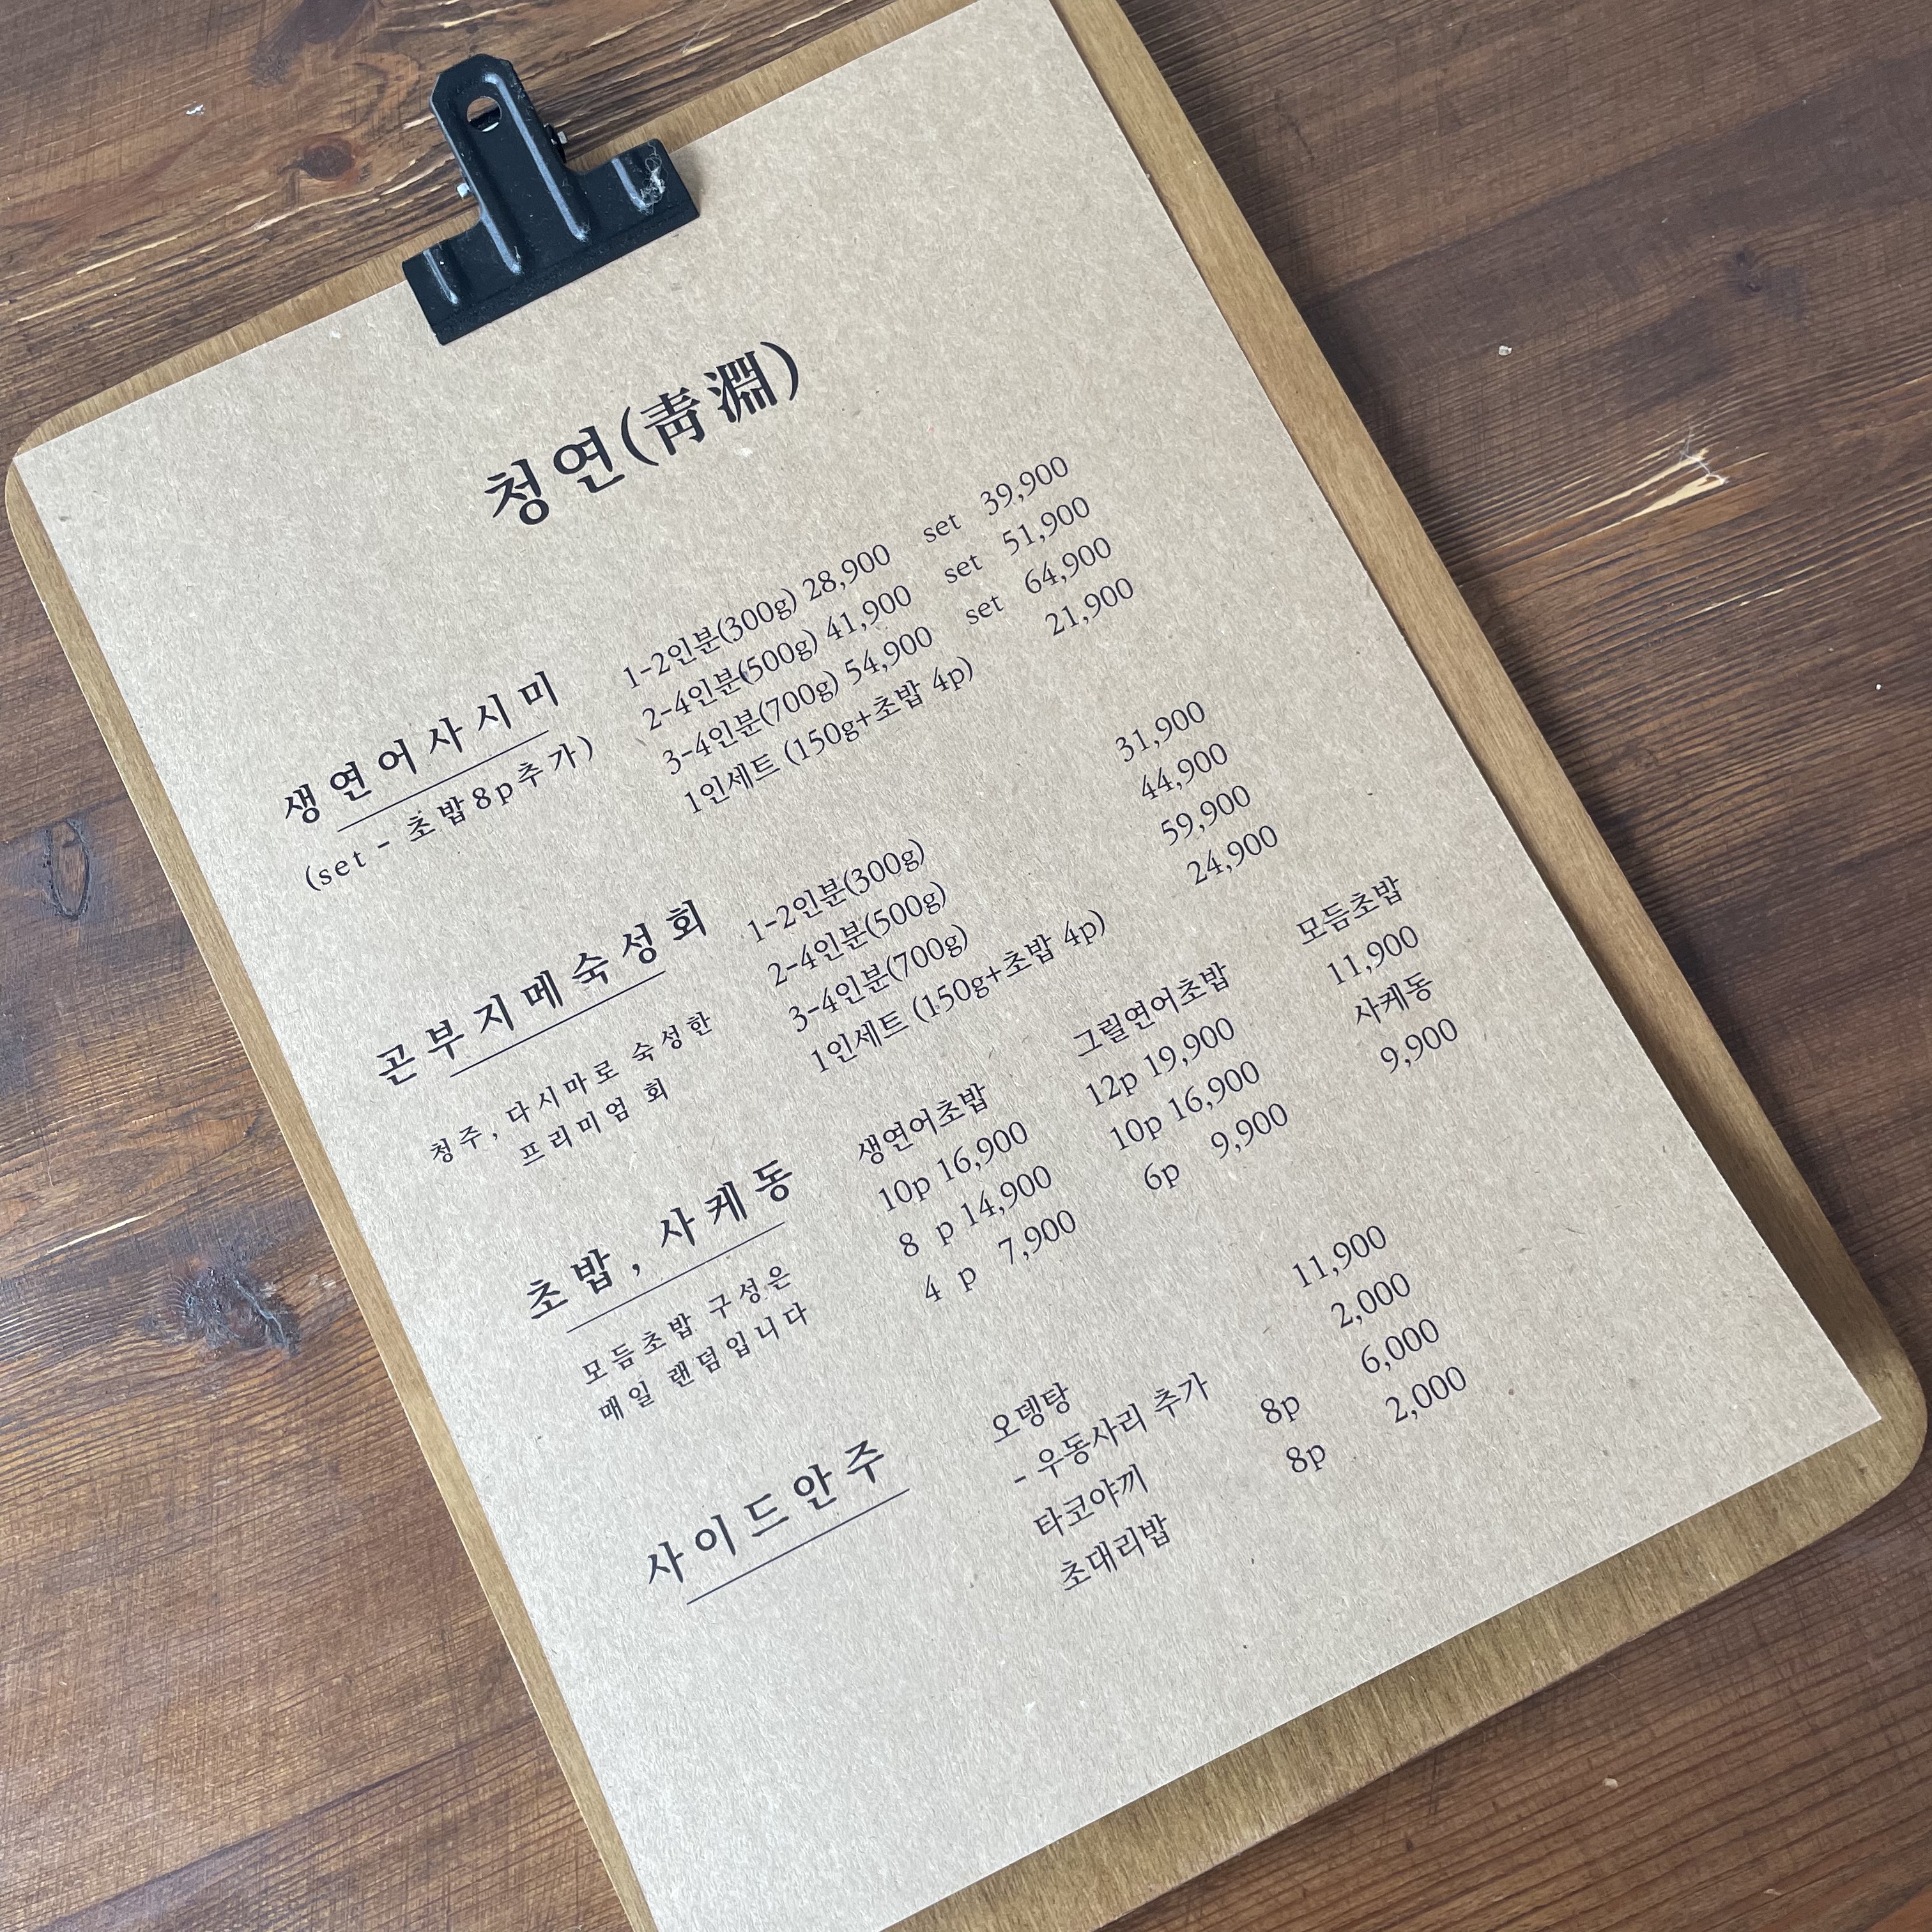 청연(靑淵)
생연어사시미
(set - 초밥8p추가)
1-2인분(300g) 28,900 set 39,900
2-4인분(500g) 41,900 set 51,900
3-4인분(700g) 54,900 set 64,900
1인세트 (150g+초밥 4p) 21,900
곤부지메숙성회
청주, 다시마로 숙성한
프리미엄 회
1-2인분(300g) 31,900
2-4인분(500g) 44,900
3-4인분(700g) 59,900
1인세트 (150g+초밥 4p) 24,900
초밥, 사케동
모듬초밥 구성은
매일 랜덤입니다
생연어초밥
10p 16,900
8 p 14,900
4 p 7,900
그릴연어초밥
12p 19,900
10p 16,900
6p 9,900
모듬초밥
11,900
사케동
9,900
사이드안주
오뎅탕 11,900
- 우동사리 추가 2,000
타코야끼 8p 6,000
초대리밥 8p 2,000